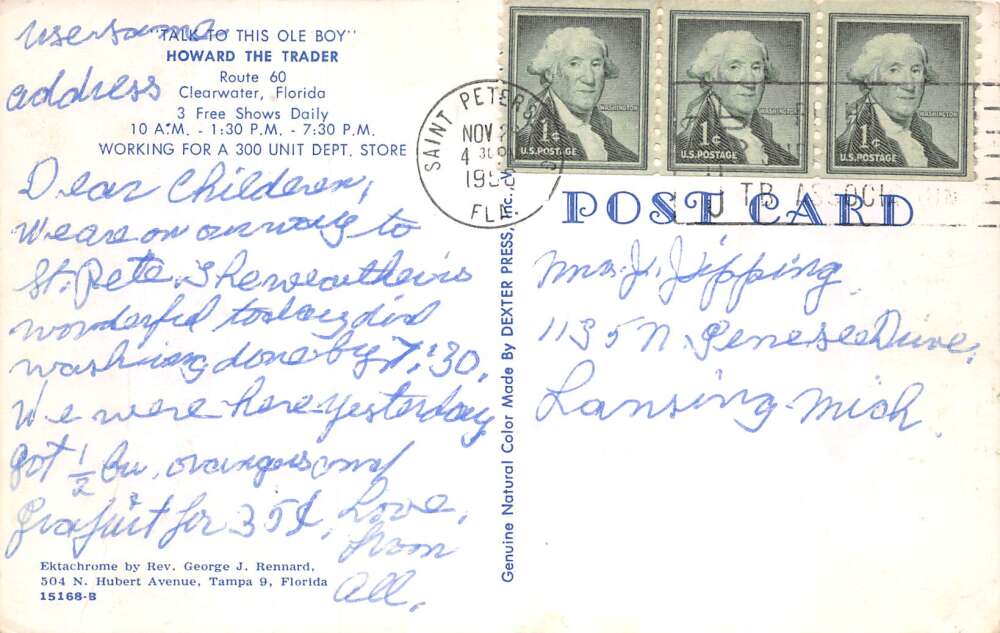 use same
address
"TALK TO THIS OLE BOY"
HOWARD THE TRADER
Route 60
Clearwater, Florida
3 Free Shows Daily
10 A.M. - 1:30 P.M. - 7:30 P.M.
WORKING FOR A 300 UNIT DEPT. STORE
Dear Childeren,
We are on our way to
St. Pete. The weather is
wonderful today did
washing done by 7:30.
We were here yesterday
got 1/2 bu. oranges and
Grafuit for 35¢, Love,
from
All.
Ektachrome by Rev. George J. Rennard,
504 N. Hubert Avenue, Tampa 9, Florida
15168-B
Genuine Natural Color Made By DEXTER PRESS, Inc.
SAINT PETERSB
NOV 2
4 30 PM
195
FLA.
WASHINGTON
1¢
U.S. POSTAGE
WASHINGTON
1¢
U.S. POSTAGE
WASHINGTON
1¢
U.S. POSTAGE
TB ASSOCI
POST CARD
Mrs. J. Jipping
1135 N. Genesee Drive,
Lansing Mich.